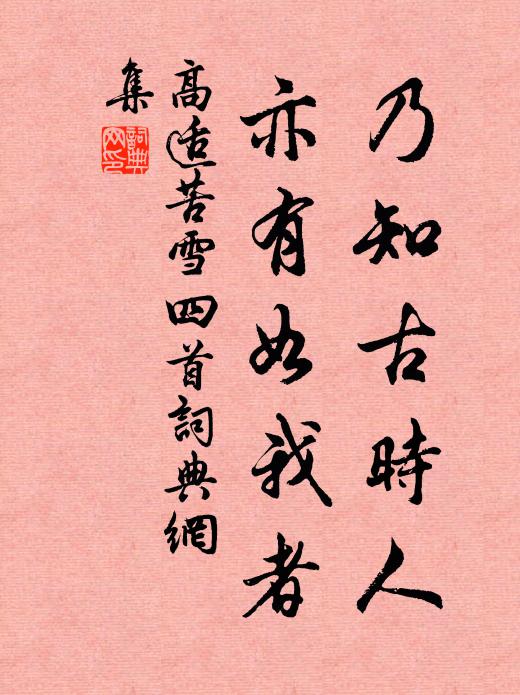 乃知古時人
亦有如我者
高适苦雪四首詞典網
集
詞典
网印